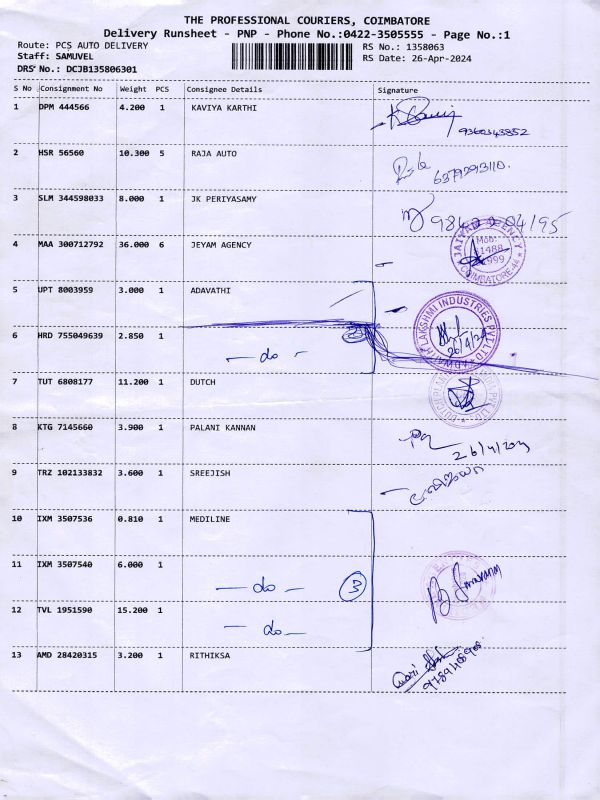 THE PROFESSIONAL COURIERS, COIMBATORE
Delivery Runsheet - PNP - Phone No.:0422-3505555 - Page No.:1
Route: PCS AUTO DELIVERY
RS No.: 1358063
Staff: SAMUVEL
RS Date: 26-Apr-2024
DRS No.: DCJB135806301
S No Consignment No Weight PCS Consignee Details Signature
1 DPM 444566 4.200 1 KAVIYA KARTHI
2 HSR 56560 10.300 5 RAJA AUTO
3 SLM 344598033 8.000 1 JK PERIYASAMY
4 MAA 300712792 36.000 6 JEYAM AGENCY
COIMBATORE
5 UPT 8003959 3.000 1 ADAVATHI
LAKSHMI INDUSTRIES PVT LTD
6 HRD 755049639 2.850 1 - do - 2
26/4/24
7 TUT 6808177 11.200 1 DUTCH
8 KTG 7145660 3.900 1 PALANI KANNAN
26/4/2024
9 TRZ 102133832 3.600 1 SREEJISH
10 IXM 3507536 0.810 1 MEDILINE
11 IXM 3507540 6.000 1 - do - 3
12 TVL 1951590 15.200 1 - do -
13 AMD 28420315 3.200 1 RITHIKSA